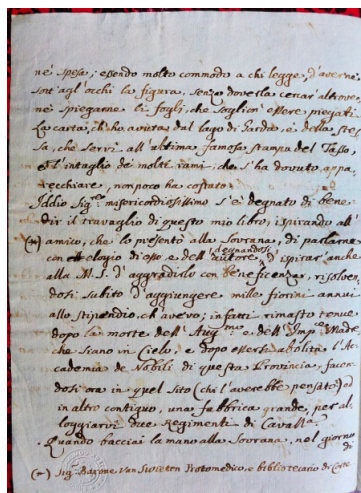 né spesa; essendo molto commodo a chi legge, d'averne
sott'agl'occhi la figura, senza doverla cercar'altrove
né spiegarne li fogli, che soglion'essere piegati.
La carta, ch'ho avuta dal lago di Garda, è della stes-
sa, che servì all'ultima famosa stampa del Tasso,
e l'intaglio de' molti rami, che s'ha dovuto appa-
recchiare, non poco ha costato.
Iddio Sig.re misericordiosissimo s'è degnato di bene-
dir il travaglio di questo mio libro, ispirando all'
(*) amico, che lo presentò alla Sovrana, di parlarne
con elogio di esso e dell'autore, degnandosi d'ispirar'anche
alla M. S. d'aggradirlo con beneficenza, risolven-
dosi subito d'aggiungere mille fiorini annui
allo stipendio, ch'avevo; infatti rimasto tenue
dopo la morte dell'Aug.mo e dell'Imp.le Madre,
che siano in Cielo, e dopo essersi abolita l'Ac-
cademia de Nobili di questa Provincia, facen-
dosi ora in quel sito (chi l'averebbe pensato) ed
in altro contiguo, una fabbrica grande, per al-
loggiarvi due Regimenti di Cavall.a
Quando bacciai la mano alla Sovrana, nel giorno
di
(*) Sig. Barone Van Swieten Protomedico, e bibliotecario di Corte